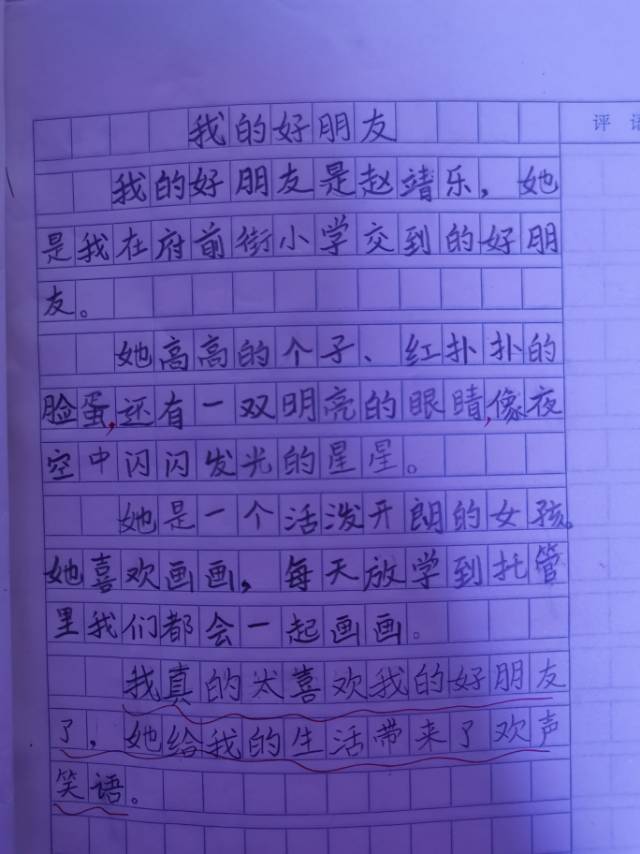 我的好朋友
评语
我的好朋友是赵靖乐，她
是我在府前街小学交到的好朋
友。
她高高的个子、红扑扑的
脸蛋,还有一双明亮的眼睛,像夜
空中闪闪发光的星星。
她是一个活泼开朗的女孩。
她喜欢画画，每天放学到托管
里我们都会一起画画。
我真的太喜欢我的好朋友
了，她给我的生活带来了欢声
笑语。